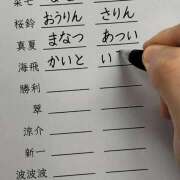 桜鈴 おうりん さりん
真夏 まなつ あつい
海飛 かいと い
勝利
翠
涼介
新一
波波波